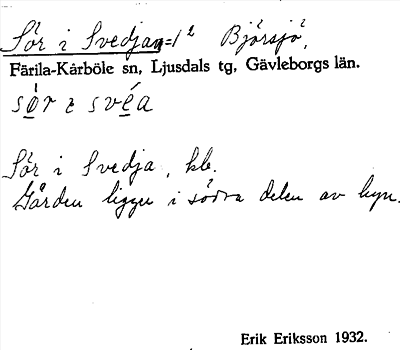 Sör i Svedjan=1² Björsjö,
Färila-Kårböle sn, Ljusdals tg, Gävleborgs län.
Sör i Svedja, hb.
Gården ligger i södra delen av byn.
Erik Eriksson 1932.